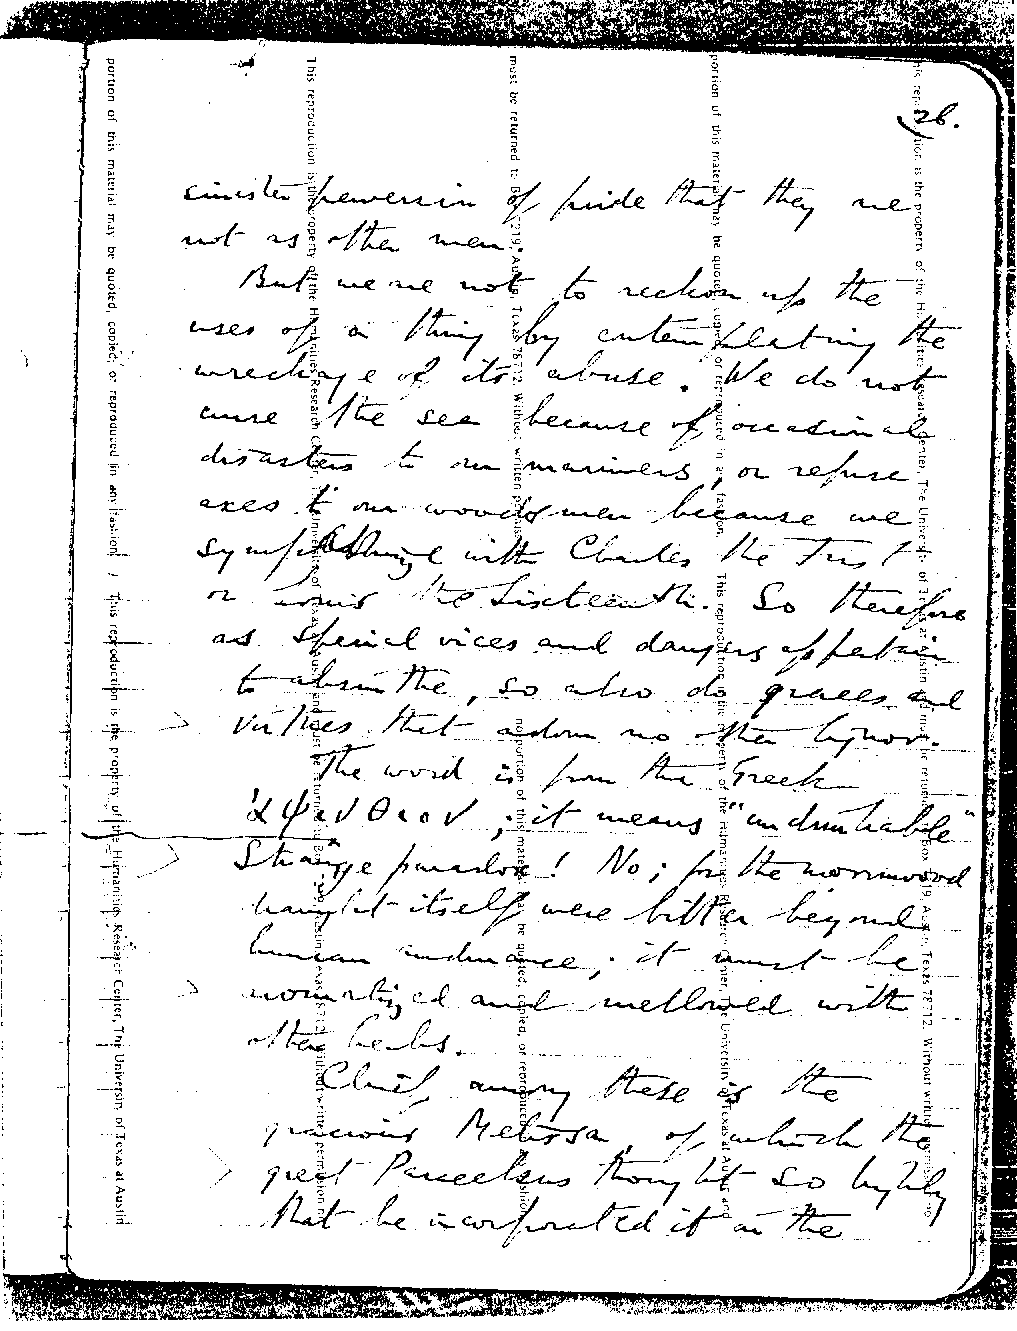 26.
sinister perversion of pride that they are
not as other men.
But we are not to reckon up the
uses of a thing by contemplating the
wreckage of its abuse. We do not
curse the sea because of occasional
disasters to our mariners, or refuse
axes to our woodsmen because we
sympathize with Charles the First
or Louis the Sixteenth. So therefore
as special vices and dangers appertain
to absinthe, so also do graces and
virtues that adorn no other liquor.
The word is from the Greek
ἀψινθιον ; it means "undrinkable"
Strange paradox! No; for the wormwood
draught itself were bitter beyond
human endurance; it must be
aromatized and mellowed with
other herbs.
Chief among these is the
gracious Melissa, of which the
great Paracelsus thought so highly
that he incorporated it in the
portion of this material may be quoted, copied, or reproduced in any fashion. This reproduction is the property of the Humanities Research Center, The University of Texas at Austin
This reproduction is the property of the Humanities Research Center, The University of Texas at Austin and must be returned to Box 7219, Austin, Texas 78712. Without written permission no
must be returned to Box 7219, Austin, Texas 78712. Without written permission no portion of this material may be quoted, copied, or reproduced in any fashion.
portion of this material may be quoted, copied, or reproduced in any fashion. This reproduction is the property of the Humanities Research Center, The University of Texas at Austin and
This reproduction is the property of the Humanities Research Center, The University of Texas at Austin and must be returned to Box 7219, Austin, Texas 78712. Without written permission no